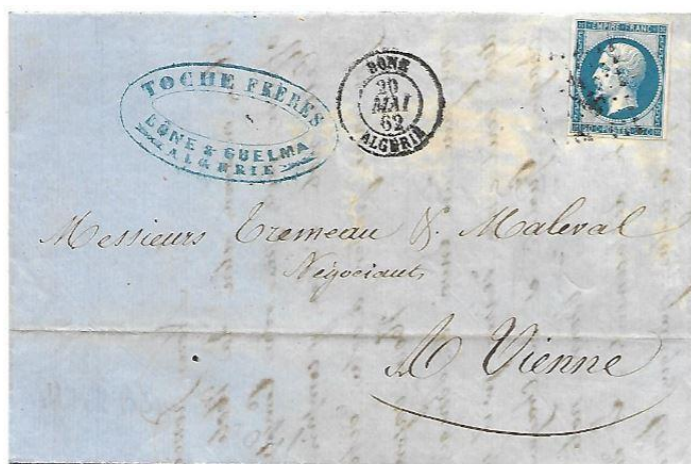 TOCHE FRÈRES
BÔNE & GUELMA
ALGÉRIE
BONE
20
MAI
62
ALGERIE
EMPIRE FRANC
20 POSTES 20
Messieurs Tremeau & Maleval
Négociants
A Vienne